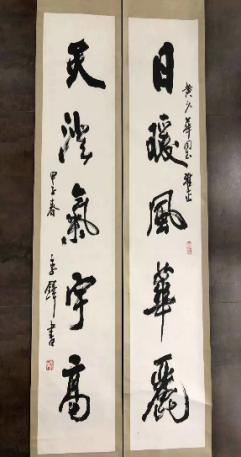 黄少華同志雅正
日暖風華麗
天澄氣宇高
甲子春
李鐸書